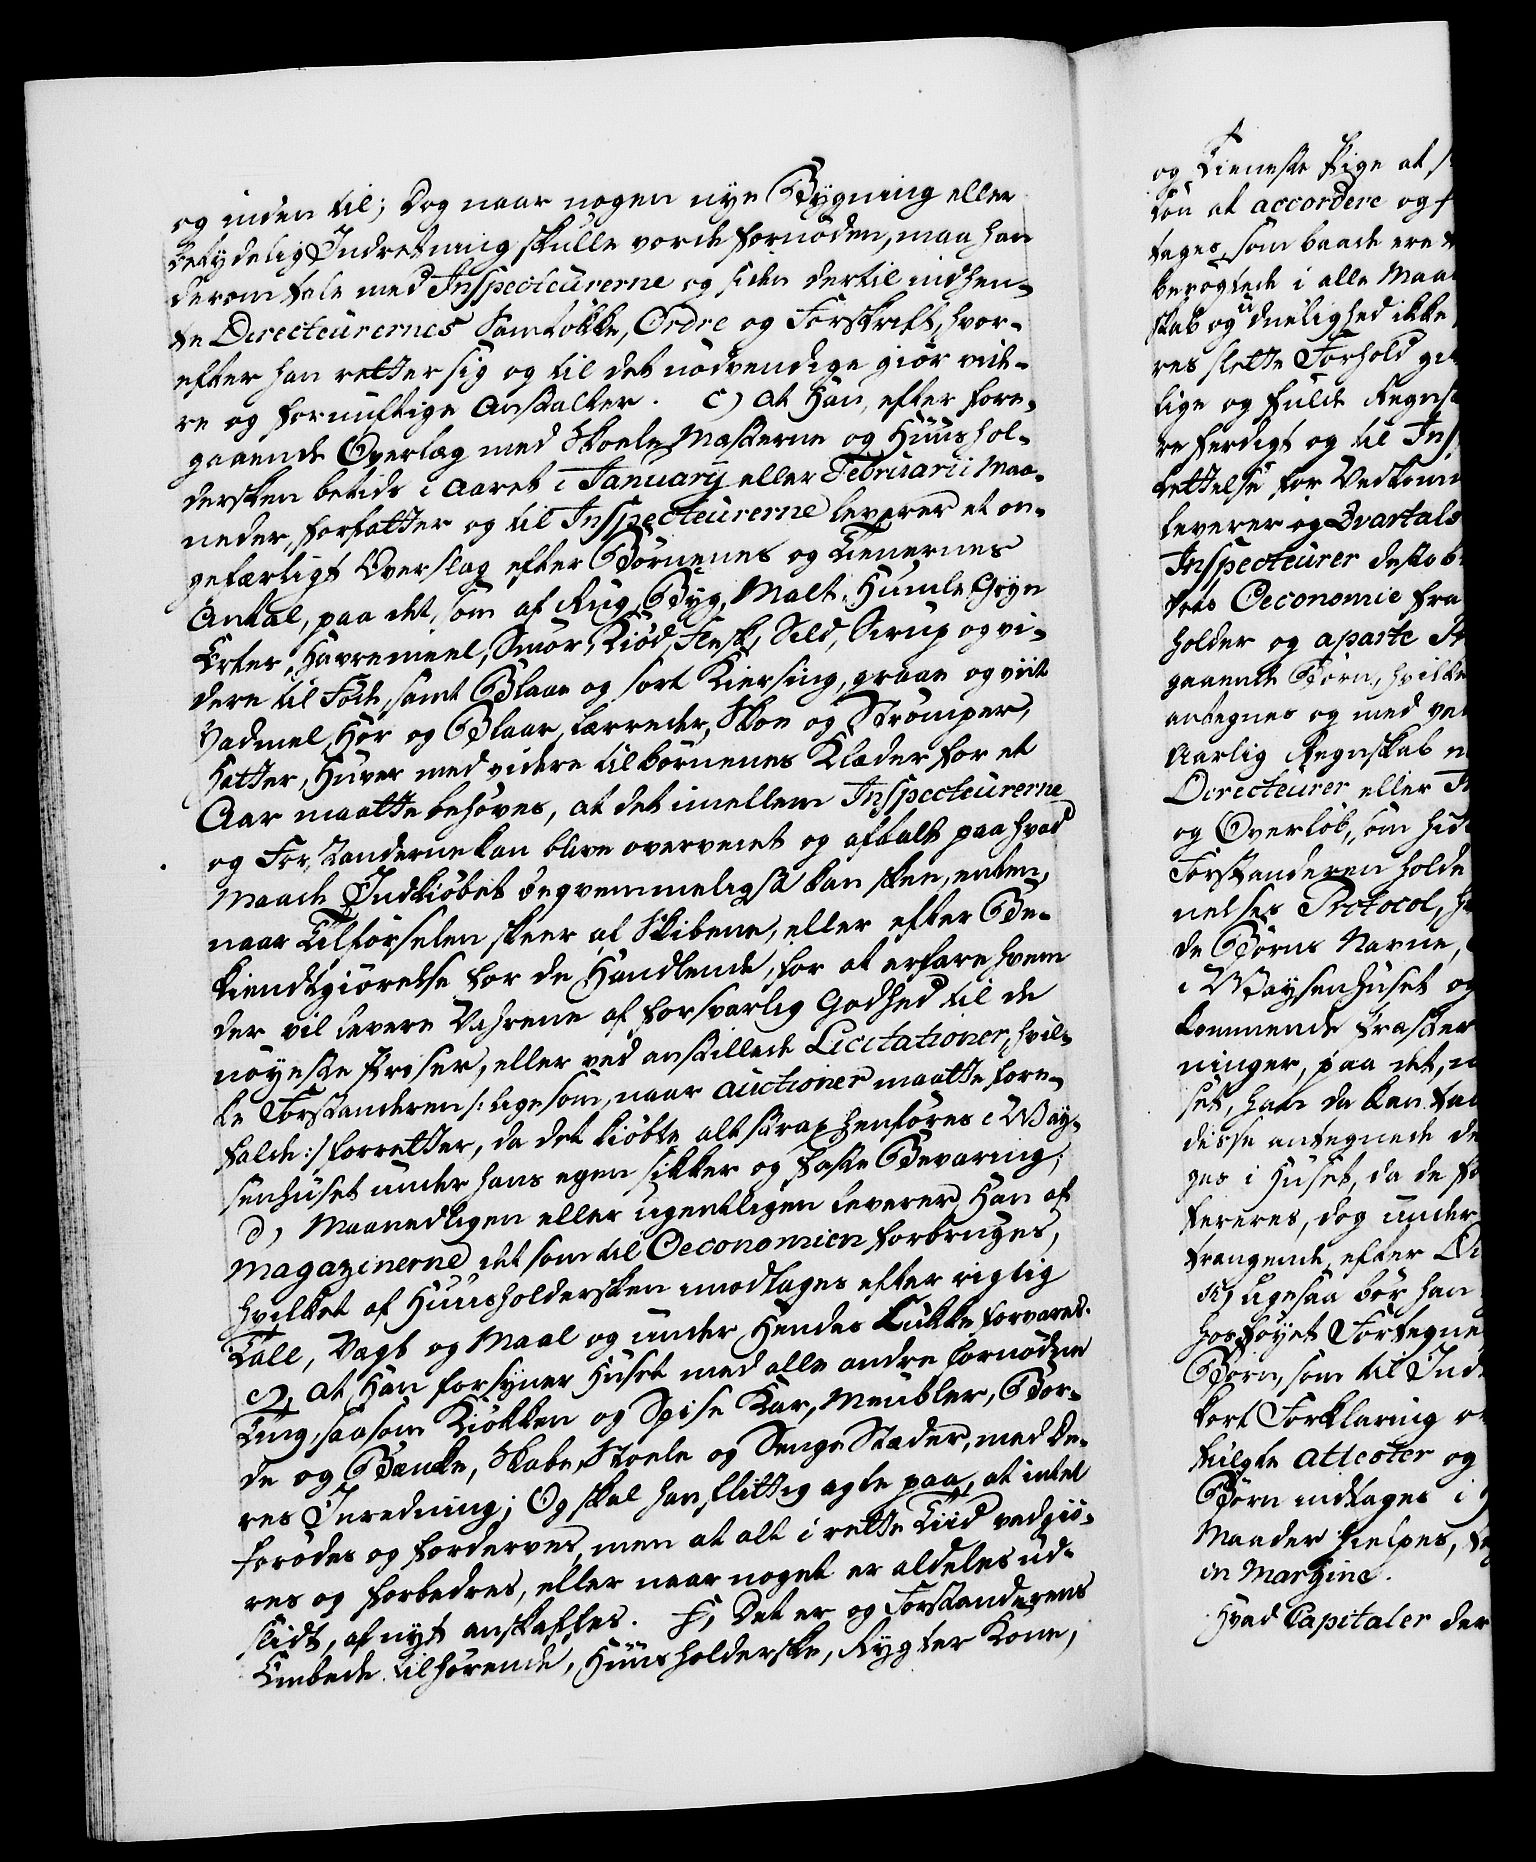 og inden til; Dog naar nogen nye Bygning eller
betydelig Indretning skulle vorde fornøden, maa han
derom tale med Inspecteurerne og siden dertil indhen-
te Directeurernes Samtökke, Ordre og Forskrift, hvor-
efter han retter sig og til det nödvendige giör vide-
re og fornuftige Anstalter. c) At Han, efter fore-
gaaende Overlæg med Skoele Mesterne og Huushol-
dersken betids i Aaret i Januarij eller Februarii Maa-
neder, forfatter og til Inspecteurerne leverer et on-
gefærligt Overslag efter Börnenes og Tienernes
Antal, paa det, som af Rug, Byg, Malt, Humle, Gryn
Erter, Havremeel, Smör, Kiöd, Flesk, Sild, Sirup og vi-
dere til Föde, samt Blaae og sort Kiersing, graae og viit
Vadmel, Hör og Blaar, Lærreder, Skoe og Strömper,
Hatter, Huver med videre til börnenes Klæder for et
Aar maatte behöves, at det imellem Inspecteurerne
og Forstanderne kan blive overveiet og aftalt paa hvad
Maade Indkiöbet beqvemmeligst kan skee, enten,
naar Tilförselen skeer af Skibene, eller efter Be-
kiendtgiörelse for de Handlende, for at erfare hvem
der vil levere Vahrene af forsvarlig Godhed til de
nöyeste Priser, eller ved anstillede Licitationer, hvil-
ke Forstanderen /: ligesom, naar Auctioner maatte fore-
falde :/ forretter, da det kiöbte alt strax henföres i Way-
senhuset under hans egen sikker og faste Bevaring;
d) Maanedligen eller ugentligen leverer Han af
Magazinerne det som til Oeconomien forbruges,
hvilket af Huusholdersken imodtages efter rigtig
Tall, Vægt og Maal og under Hendes Lukke forvares.
e) At Han forsyner Huset med alle andre fornödne
Ting, saasom Kiökken og Spise Kar, Meubler, Bor-
de og Bænke, Skabe, Stoele og Senge Stæder, med De-
res Inredning; Og skal han flittig agte paa, at intet
forödes og forderves, men at alt i rette Tiid vedgiö-
res og forbedres, eller naar noget er aldeles ud-
slidt, af nyt anskaffes. f) Det er og Forstanderens
Embede tilhörende, Huusholderske, Rygter Kone,
og Tieneste Pige at
Lön at accordere og
tages, som baade ere
berögtede i alle Maa
skab og uduelighed ikke
res slette Forhold
lige og fulde Regnsk
re færdigt og til Ins
rettelse for Vedkomm
leverer og Qvartals
Inspecteurer
Oeconomie fra
holder og aparte
gaaende Börn, hvilke
antegnes og med
Aarlig Regnskab
Directeurer eller
og Overlöb, som
Forstanderen holde
nelses Protocol,
de Börns Navne,
i Waysenhuset og
kommende Præster
ninger, paa det,
set, han da kan
disse antegnede de
ges i Huset, da de
fereres, dog under
trængende, efter
ligesaa bör han
hosföyet Fortegne
Börn, som til Ind
kort Forklaring
fulgte Attester og
Börn indtages i
Maader hielpes,
in Margine.
Hvad Capitaler der